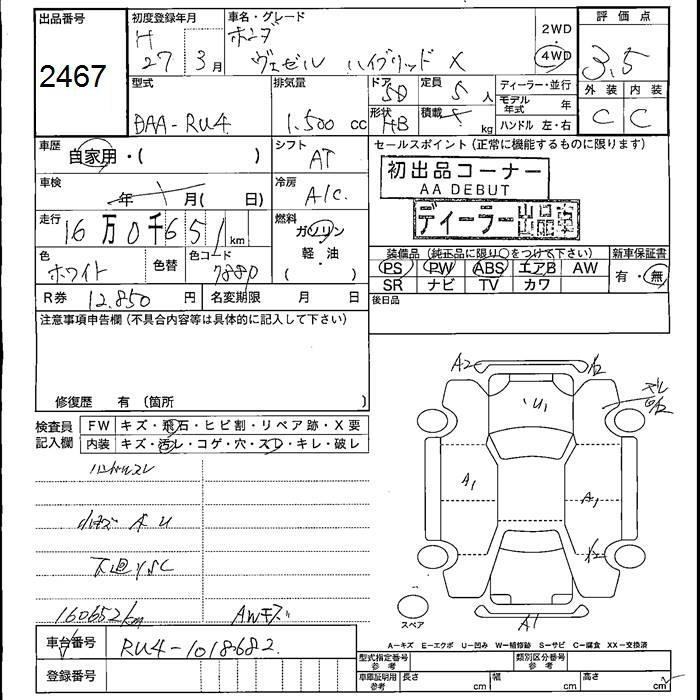 出品番号
2467
初度登録年月
H
27 3月
車名・グレード
ホンダ
ヴェゼル ハイブリッド X
2WD
・
4WD
評価点
3.5
外装 内装
C C
型式
DAA-RU4
排気量
1.500 cc
ドア
5D
形状
HB
定員
5人
積載
kg
ディーラー・並行
モデル年式 年
ハンドル 左・右
車歴
自家用・( )
シフト
AT
セールスポイント(正常に機能するものに限ります)
初出品コーナー
AA DEBUT
ディーラー出品車
車検
年 月( 日)
冷房
A/C
走行
16万0千651km
燃料
ガソリン
軽・油
( )
色
ホワイト
色替
色コード
装備品(純正品に限り○をつけて下さい)
PS PW ABS エアB AW
SR ナビ TV カワ
新車保証書
有・無
R券 12.850 円
名変期限 月 日
後日品
注意事項申告欄(不具合内容等は具体的に記入して下さい)
修復歴 有(箇所 )
検査員
記入欄
FW キズ・飛石・ヒビ割・リペア跡・X要
内装 キズ・汚レ・コゲ・穴・スレ・キレ・破レ
ハンドルスレ
小キズ A U
下廻りSC
160652km AWキズ
A2
U1
A1
A1
A1
スペア
A-キズ E-エクボ U-凹み W-補修跡 S-サビ C-腐食 XX-交換済
車台番号
RU4-1018682
登録番号
型式指定番号
参考
類別区分番号
参考
車庫証明用
参考
長さ cm
幅 cm
高さ cm